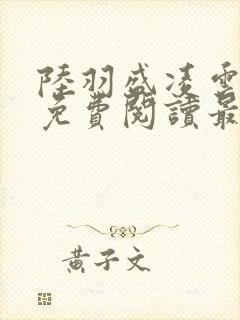 陸羽盛凌雲
免費閱讀最
黃子文